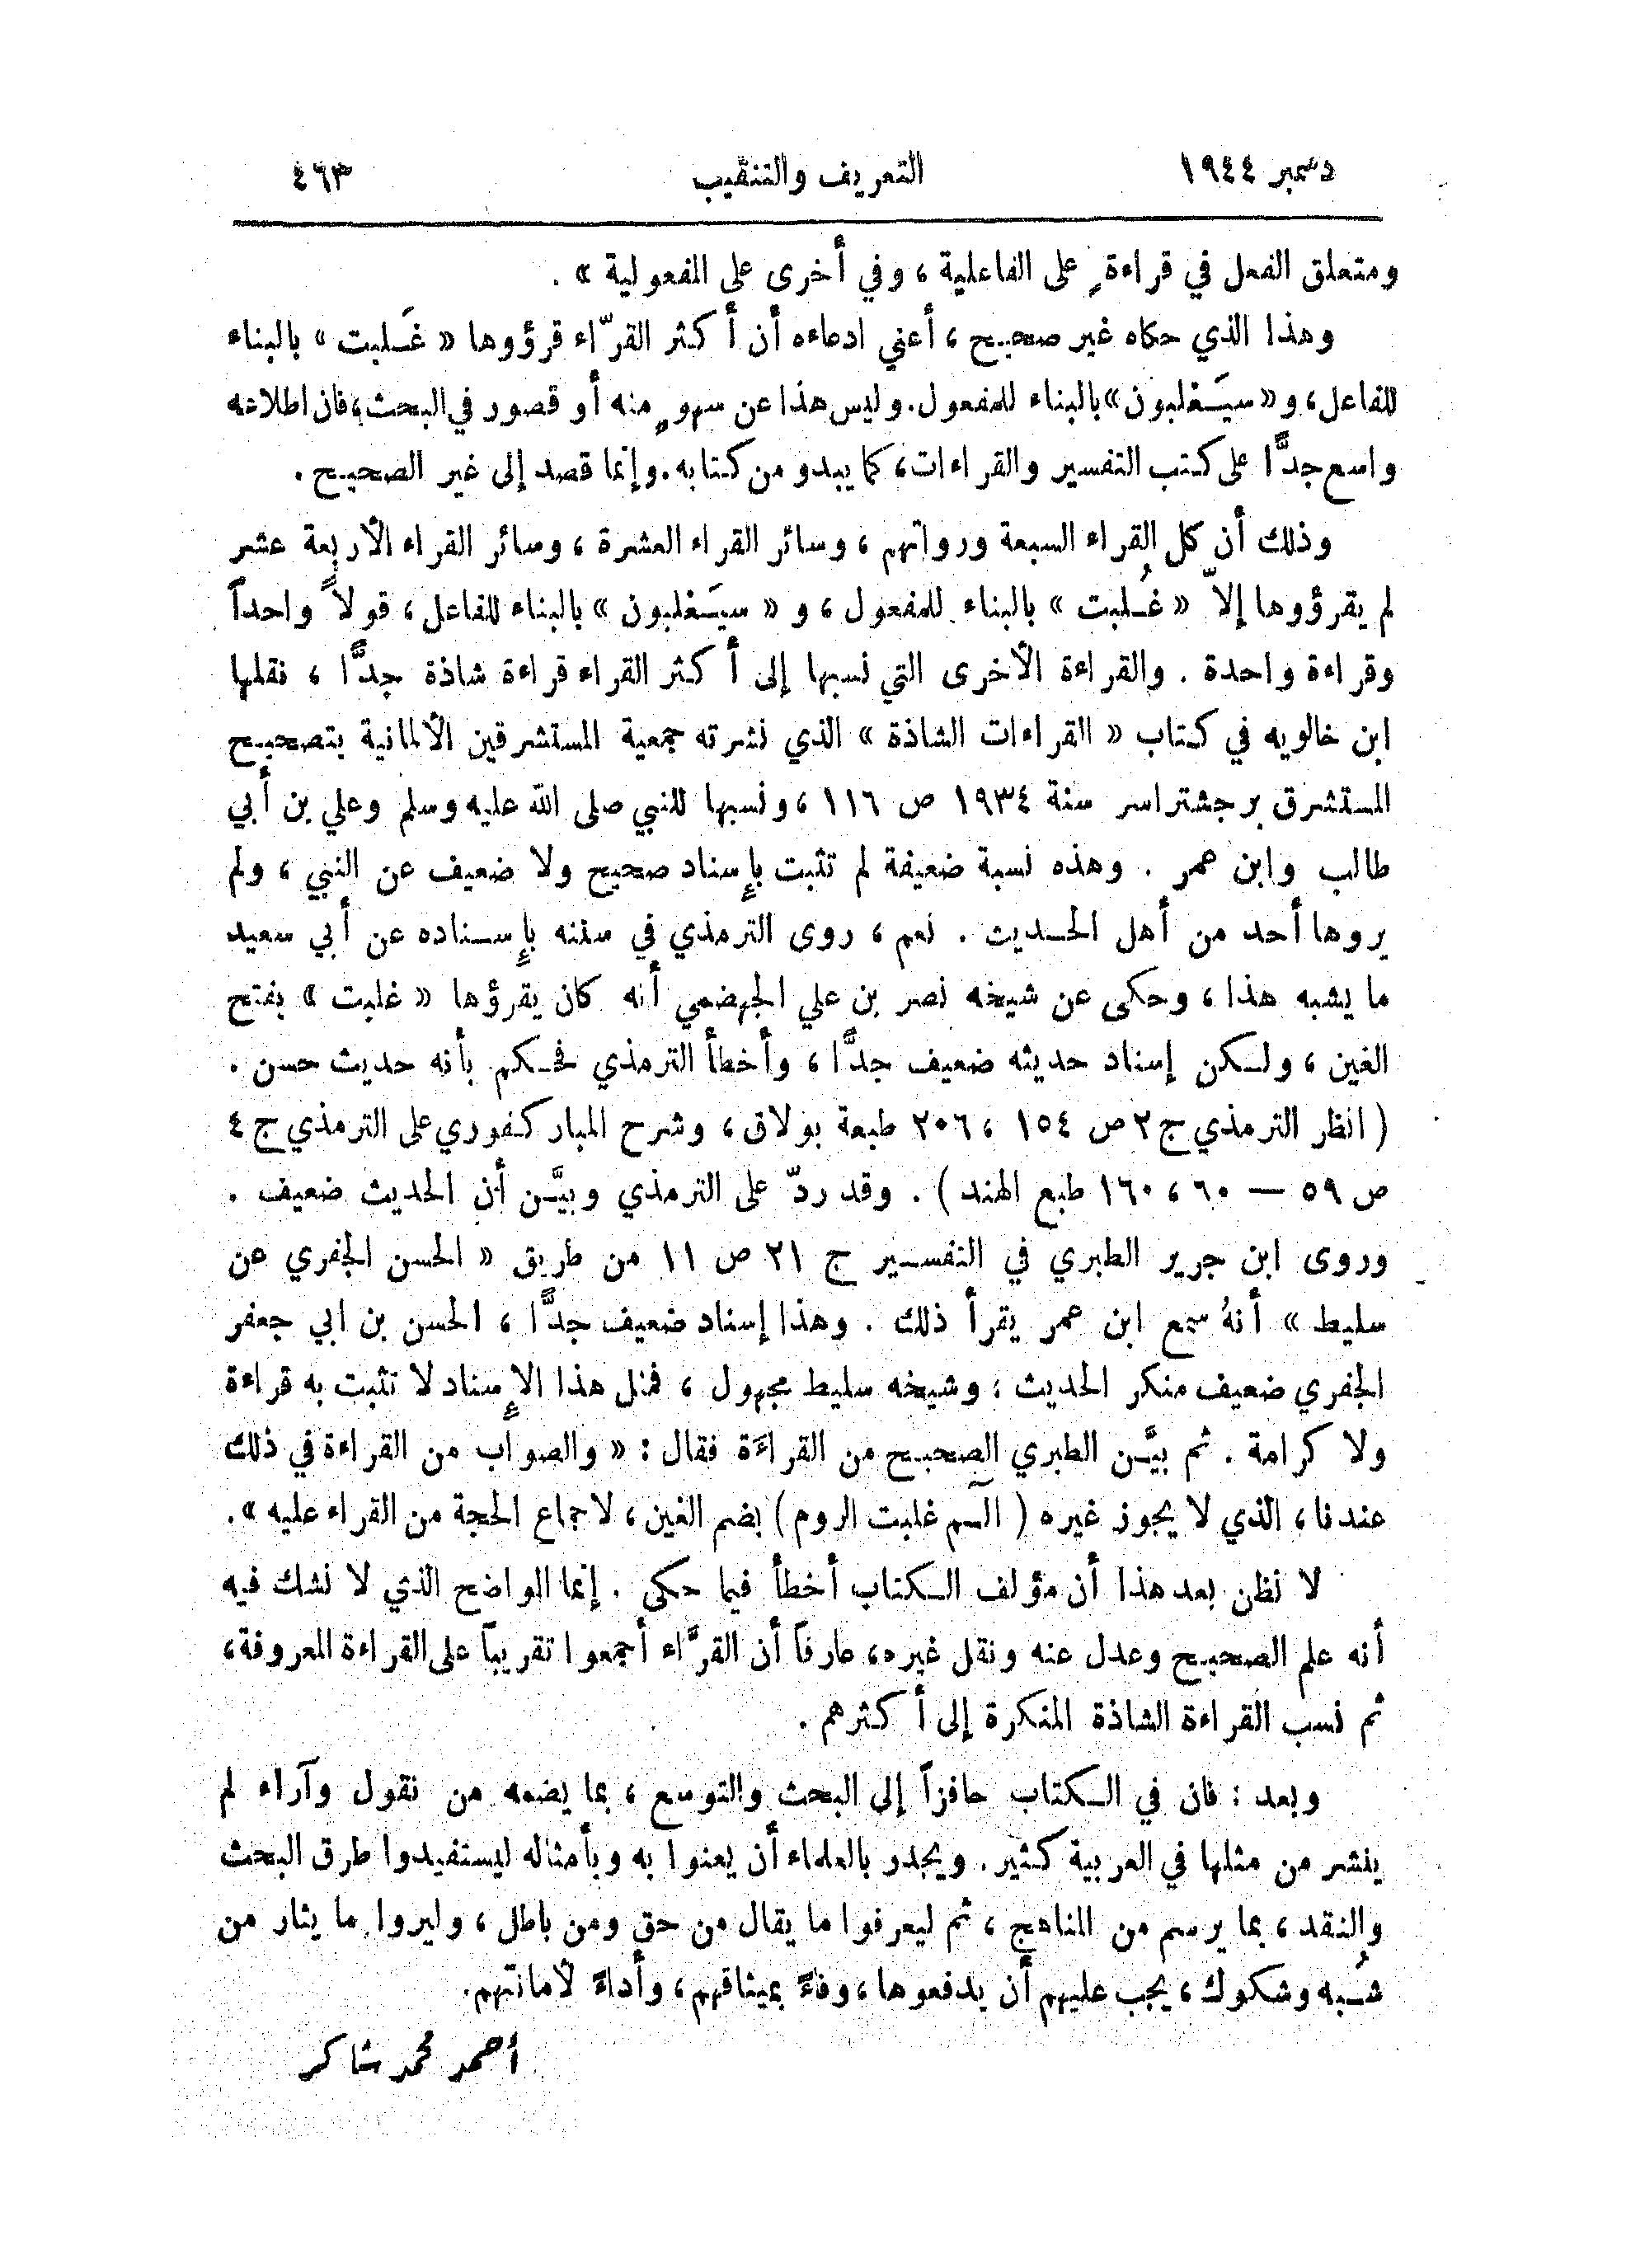 دسمبر ١٩٤٤ التعريف والتنقيب ٤٦٣
ومتعلق الفعل في قراءةٍ على الفاعلية ، وفي أخرى على المفعولية » .
وهذا الذي حكاه غير صحيح ، أعني ادعاءه أن أكثر القرّاء قرؤوها « غَلبت » بالبناء
للفاعل ، و « سيَغلبون » بالبناء للمفعول . وليس هذا عن سهوٍ منه أو قصور في البحث ، فان اطلاعه
واسع جدًّا على كتب التفسير والقراءات ، كما يبدو من كتابه . وإنما قصد إلى غير الصحيح .
وذلك أن كل القراء السبعة ورواتهم ، وسائر القراء العشرة ، وسائر القراء الأربعة عشر
لم يقرؤوها إلاّ « غُلبت » بالبناء للمفعول ، و « سيَغلبون » بالبناء للفاعل ، قولاً واحداً
وقراءة واحدة . والقراءة الأخرى التي نسبها إلى أكثر القراء قراءة شاذة جدًّا ، نقلها
ابن خالويه في كتاب « القراءات الشاذة » الذي نشرته جمعية المستشرقين الألمانية بتصحيح
المستشرق برجشتراسر سنة ١٩٣٤ ص ١١٦ ، ونسبها للنبي صلى الله عليه وسلم وعلي بن أبي
طالب وابن عمر . وهذه نسبة ضعيفة لم تثبت بإسناد صحيح ولا ضعيف عن النبي ، ولم
يروها أحد من أهل الحديث . نعم ، روى الترمذي في سننه بإسناده عن أبي سعيد
ما يشبه هذا ، وحكى عن شيخه نصر بن علي الجهضمي أنه كان يقرؤها « غلبت » بفتح
الغين ، ولكن إسناد حديثه ضعيف جدًّا ، وأخطأ الترمذي فحكم بأنه حديث حسن .
( انظر الترمذي ج ٢ ص ١٥٤ ، ٢٠٦ طبعة بولاق ، وشرح المباركفوري على الترمذي ج ٤
ص ٥٩ — ٦٠ ، ١٦٠ طبع الهند ) . وقد ردّ على الترمذي وبيَّن أن الحديث ضعيف .
وروى ابن جرير الطبري في التفسير ج ٢١ ص ١١ من طريق « الحسن الجفري عن
سليط » أنهُ سمع ابن عمر يقرأ ذلك . وهذا إسناد ضعيف جدًّا ، الحسن بن ابي جعفر
الجفري ضعيف منكر الحديث ؛ وشيخه سليط مجهول ، فمثل هذا الإسناد لا تثبت به قراءة
ولا كرامة . ثم بيَّن الطبري الصحيح من القراءَة فقال : « والصواب من القراءة في ذلك
عندنا ، الذي لا يجوز غيره ( الٓـم غلبت الروم ) بضم الغين ، لاجماع الحجة من القراء عليه » .
لا نظن بعد هذا أن مؤلف الكتاب أخطأ فيما حكى . إنما الواضح الذي لا نشك فيه
أنه علم الصحيح وعدل عنه ونقل غيره ، عارفاً أن القرَّاء أجمعوا تقريباً على القراءة المعروفة ،
ثم نسب القراءة الشاذة المنكرة إلى أكثرهم .
وبعد : فان في الكتاب حافزاً إلى البحث والتوسع ، بما يضمه من نقول وآراء لم
ينشر من مثلها في العربية كثير . ويجدر بالعلماء أن يعنوا به وبأمثاله ليستفيدوا طرق البحث
والنقد ، بما يرسم من المناهج ، ثم ليعرفوا ما يقال من حق ومن باطل ، وليروا ما يثار من
شُبه وشكوك ، يجب عليهم أن يدفعوها ، وفاءً بميثاقهم ، وأداءً لأمانتهم .
أحمد محمد شاكر